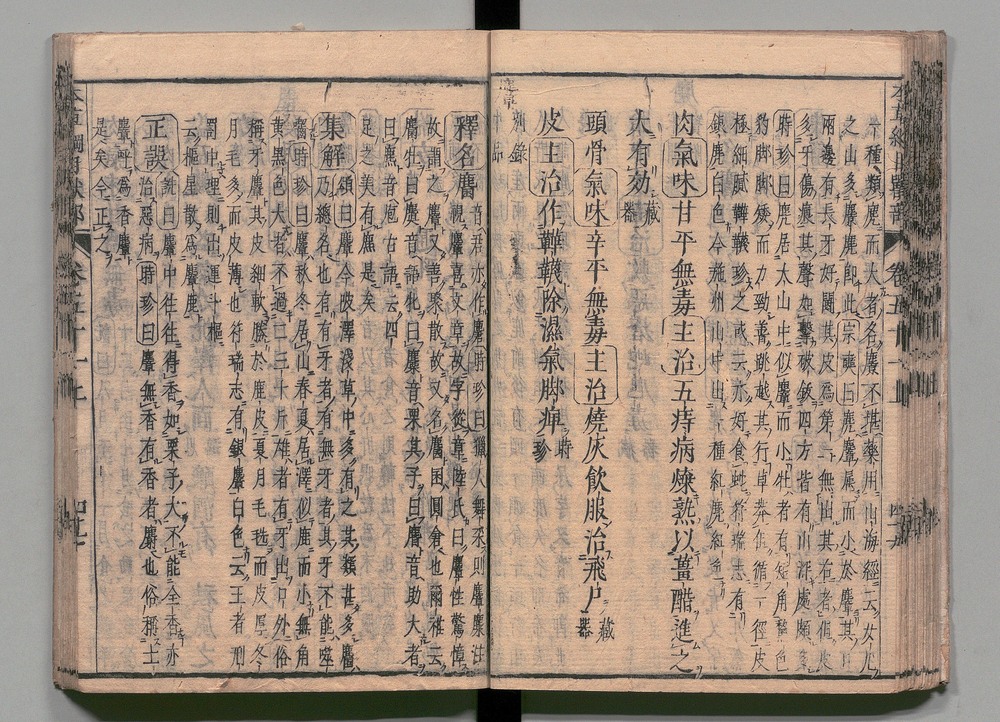 一種類麂而大者名麖不堪藥用山海經云女几
之山多麖麂即此宗奭曰麂麞屬而小於麞其口
兩邊有長牙好鬭其皮爲第一無出其右者但皮
多牙傷痕其聲如擊破鈸四方皆有山深處頗多
時珍曰麂居大山中似麞而小牡者有短角黧色
豹脚脚矮而力勁善跳越其行草莽但循一徑皮
極細膩鞾韈珍之或云亦好食蛇符瑞志有
銀麂白色今施州山中出一種紅麂紅色
肉氣味甘平無毒主治五痔病煠熟以薑醋進之
大有効藏器
頭骨氣味辛平無毒主治燒灰飲服治飛尸藏器
皮主治作鞾韈除濕氣脚痺時珍
釋名麕音君亦作麇時珍曰獵人舞采則麞麋注
視麞喜文章故字從章陸氏曰麞性驚慞
故謂之麞又善聚散故又名麕囷圓倉也爾雅云
麕牡曰麌音語牝曰麜音栗其子曰麆音助大者
曰麃音庖古語云四
足之美有麃是矣
集解頌曰麞今陂澤淺草中多有之其類甚多麕
乃總名也有有牙者有無牙者其牙不能噬
齧時珍曰麞秋冬居山春夏居澤似鹿而小無角
黃黑色大者不過二三十斤雄者有牙出口外俗
稱牙麞其皮細軟勝於鹿皮夏月毛毨而皮厚冬
月毛多而皮薄也符瑞志有銀麞白色云王者刑
罰中理則出運斗樞
云樞星散爲麞鹿
正誤詵曰麞中往往得香如栗子大不能全香亦
治惡病時珍曰麞無香有香者麝也俗稱土
麞呼爲香麞
是矣今正之